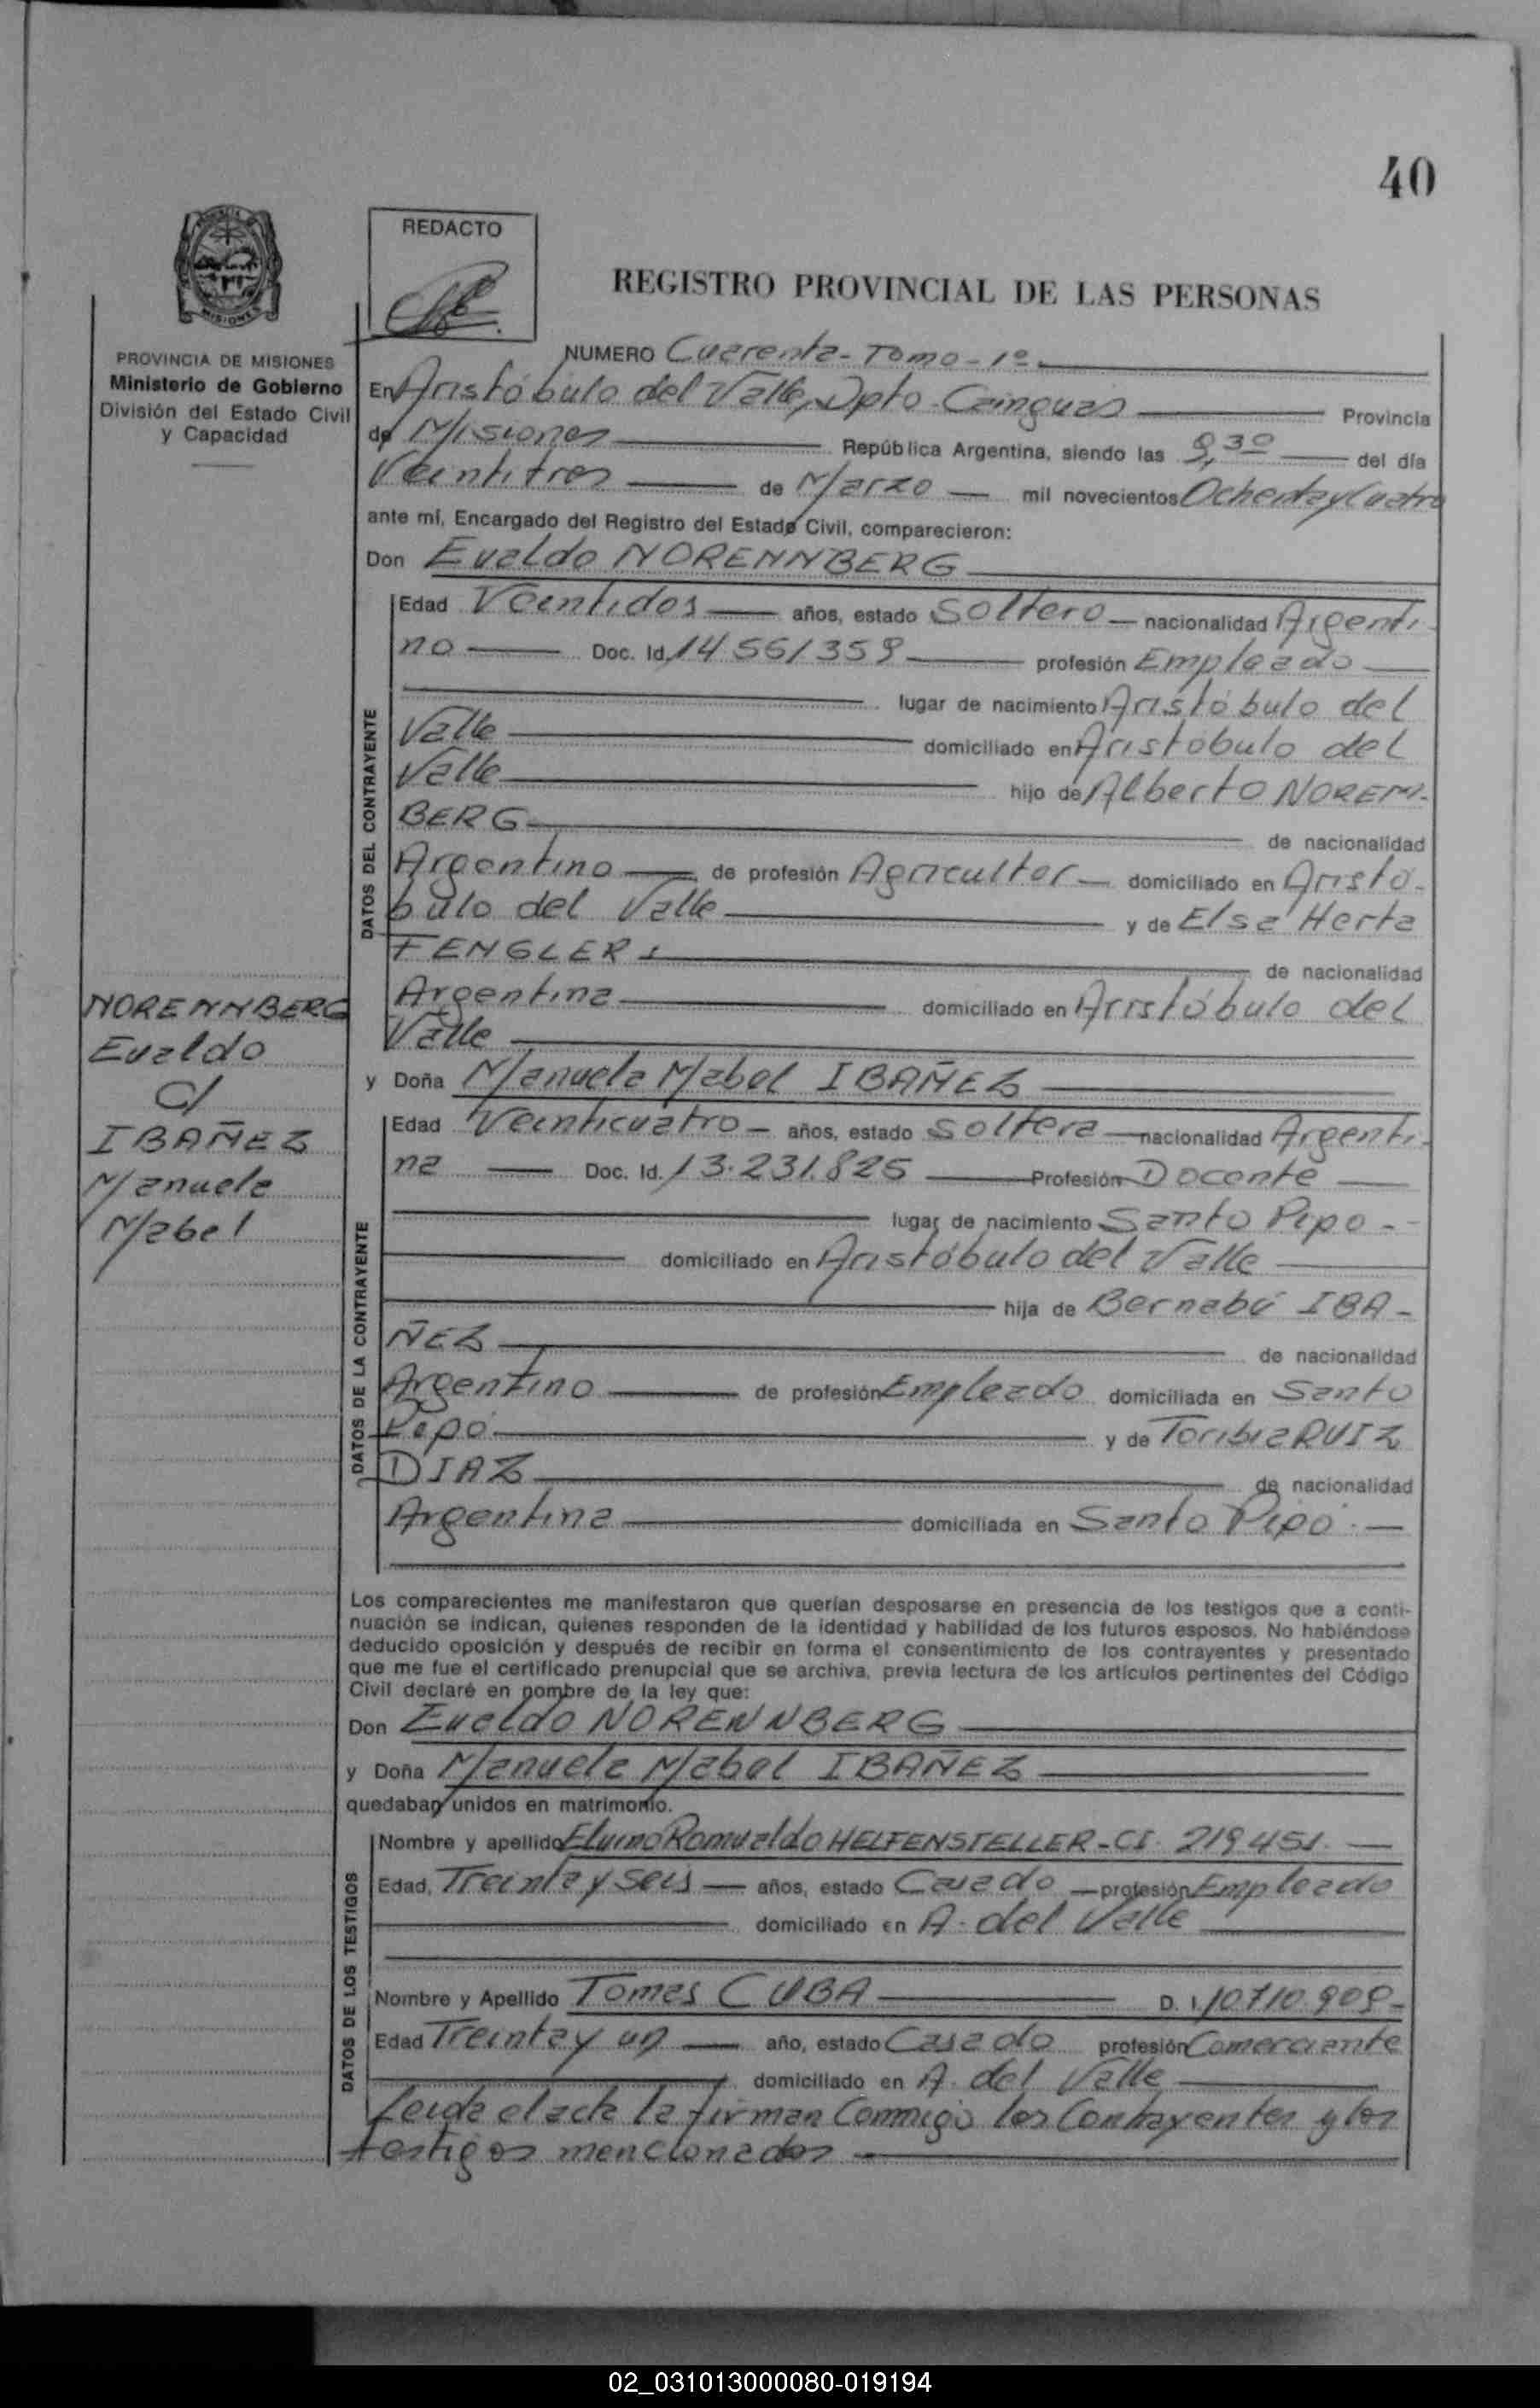 40
REDACTO
REGISTRO PROVINCIAL DE LAS PERSONAS
MISIONES
PROVINCIA DE MISIONES
Ministerio de Gobierno
División del Estado Civil
y Capacidad
NUMERO Cuarenta - Tomo - 1º
En Aristóbulo del Valle, Dpto - Cainguas Provincia
de Misiones República Argentina, siendo las 9,30 del día
Veintitres de Marzo mil novecientos Ochenta y Cuatro
ante mí, Encargado del Registro del Estado Civil, comparecieron:
Don Evaldo NORENNBERG
DATOS DEL CONTRAYENTE
Edad Veintidos años, estado Soltero nacionalidad Argenti-
no Doc. Id. 14 561 359 profesión Empleado
lugar de nacimiento Aristóbulo del
Valle domiciliado en Aristóbulo del
Valle hijo de Alberto NOREM-
BERG de nacionalidad
Argentino de profesión Agricultor domiciliado en Aristó-
bulo del Valle y de Elsa Herta
FENGLER de nacionalidad
Argentina domiciliado en Aristóbulo del
Valle
NORENNBERG
Evaldo
c/
IBAÑEZ
Manuela
Mabel
y Doña Manuela Mabel IBAÑEZ
DATOS DE LA CONTRAYENTE
Edad Veinticuatro - años, estado Soltera nacionalidad Argenti-
na Doc. Id. 13.231.825 Profesión Docente
lugar de nacimiento Santo Pipo -
domiciliado en Aristóbulo del Valle
hija de Bernabé IBA-
ÑEZ de nacionalidad
Argentino de profesión Empleado domiciliada en Santo
Pipó y de Toribia RUIZ
DIAZ de nacionalidad
Argentina domiciliada en Santo Pipó.
Los comparecientes me manifestaron que querían desposarse en presencia de los testigos que a conti-
nuación se indican, quienes responden de la identidad y habilidad de los futuros esposos. No habiéndose
deducido oposición y después de recibir en forma el consentimiento de los contrayentes y presentado
que me fue el certificado prenupcial que se archiva, previa lectura de los artículos pertinentes del Código
Civil declaré en nombre de la ley que:
Don Evaldo NORENNBERG
y Doña Manuela Mabel IBAÑEZ
quedaban unidos en matrimonio.
DATOS DE LOS TESTIGOS
Nombre y apellido Elvino Romualdo HELFENSTELLER - CI. 219 451.
Edad, Treinta y seis años, estado Casado profesión Empleado
domiciliado en A. del Valle
Nombre y Apellido Tomas CUBA D. I. 10 710.909 -
Edad Treinta y un año, estado Casado profesión Comerciante
domiciliado en A. del Valle
Leida el acta la firman Conmigo los Contrayentes y los
testigos mencionados
02_031013000080-019194